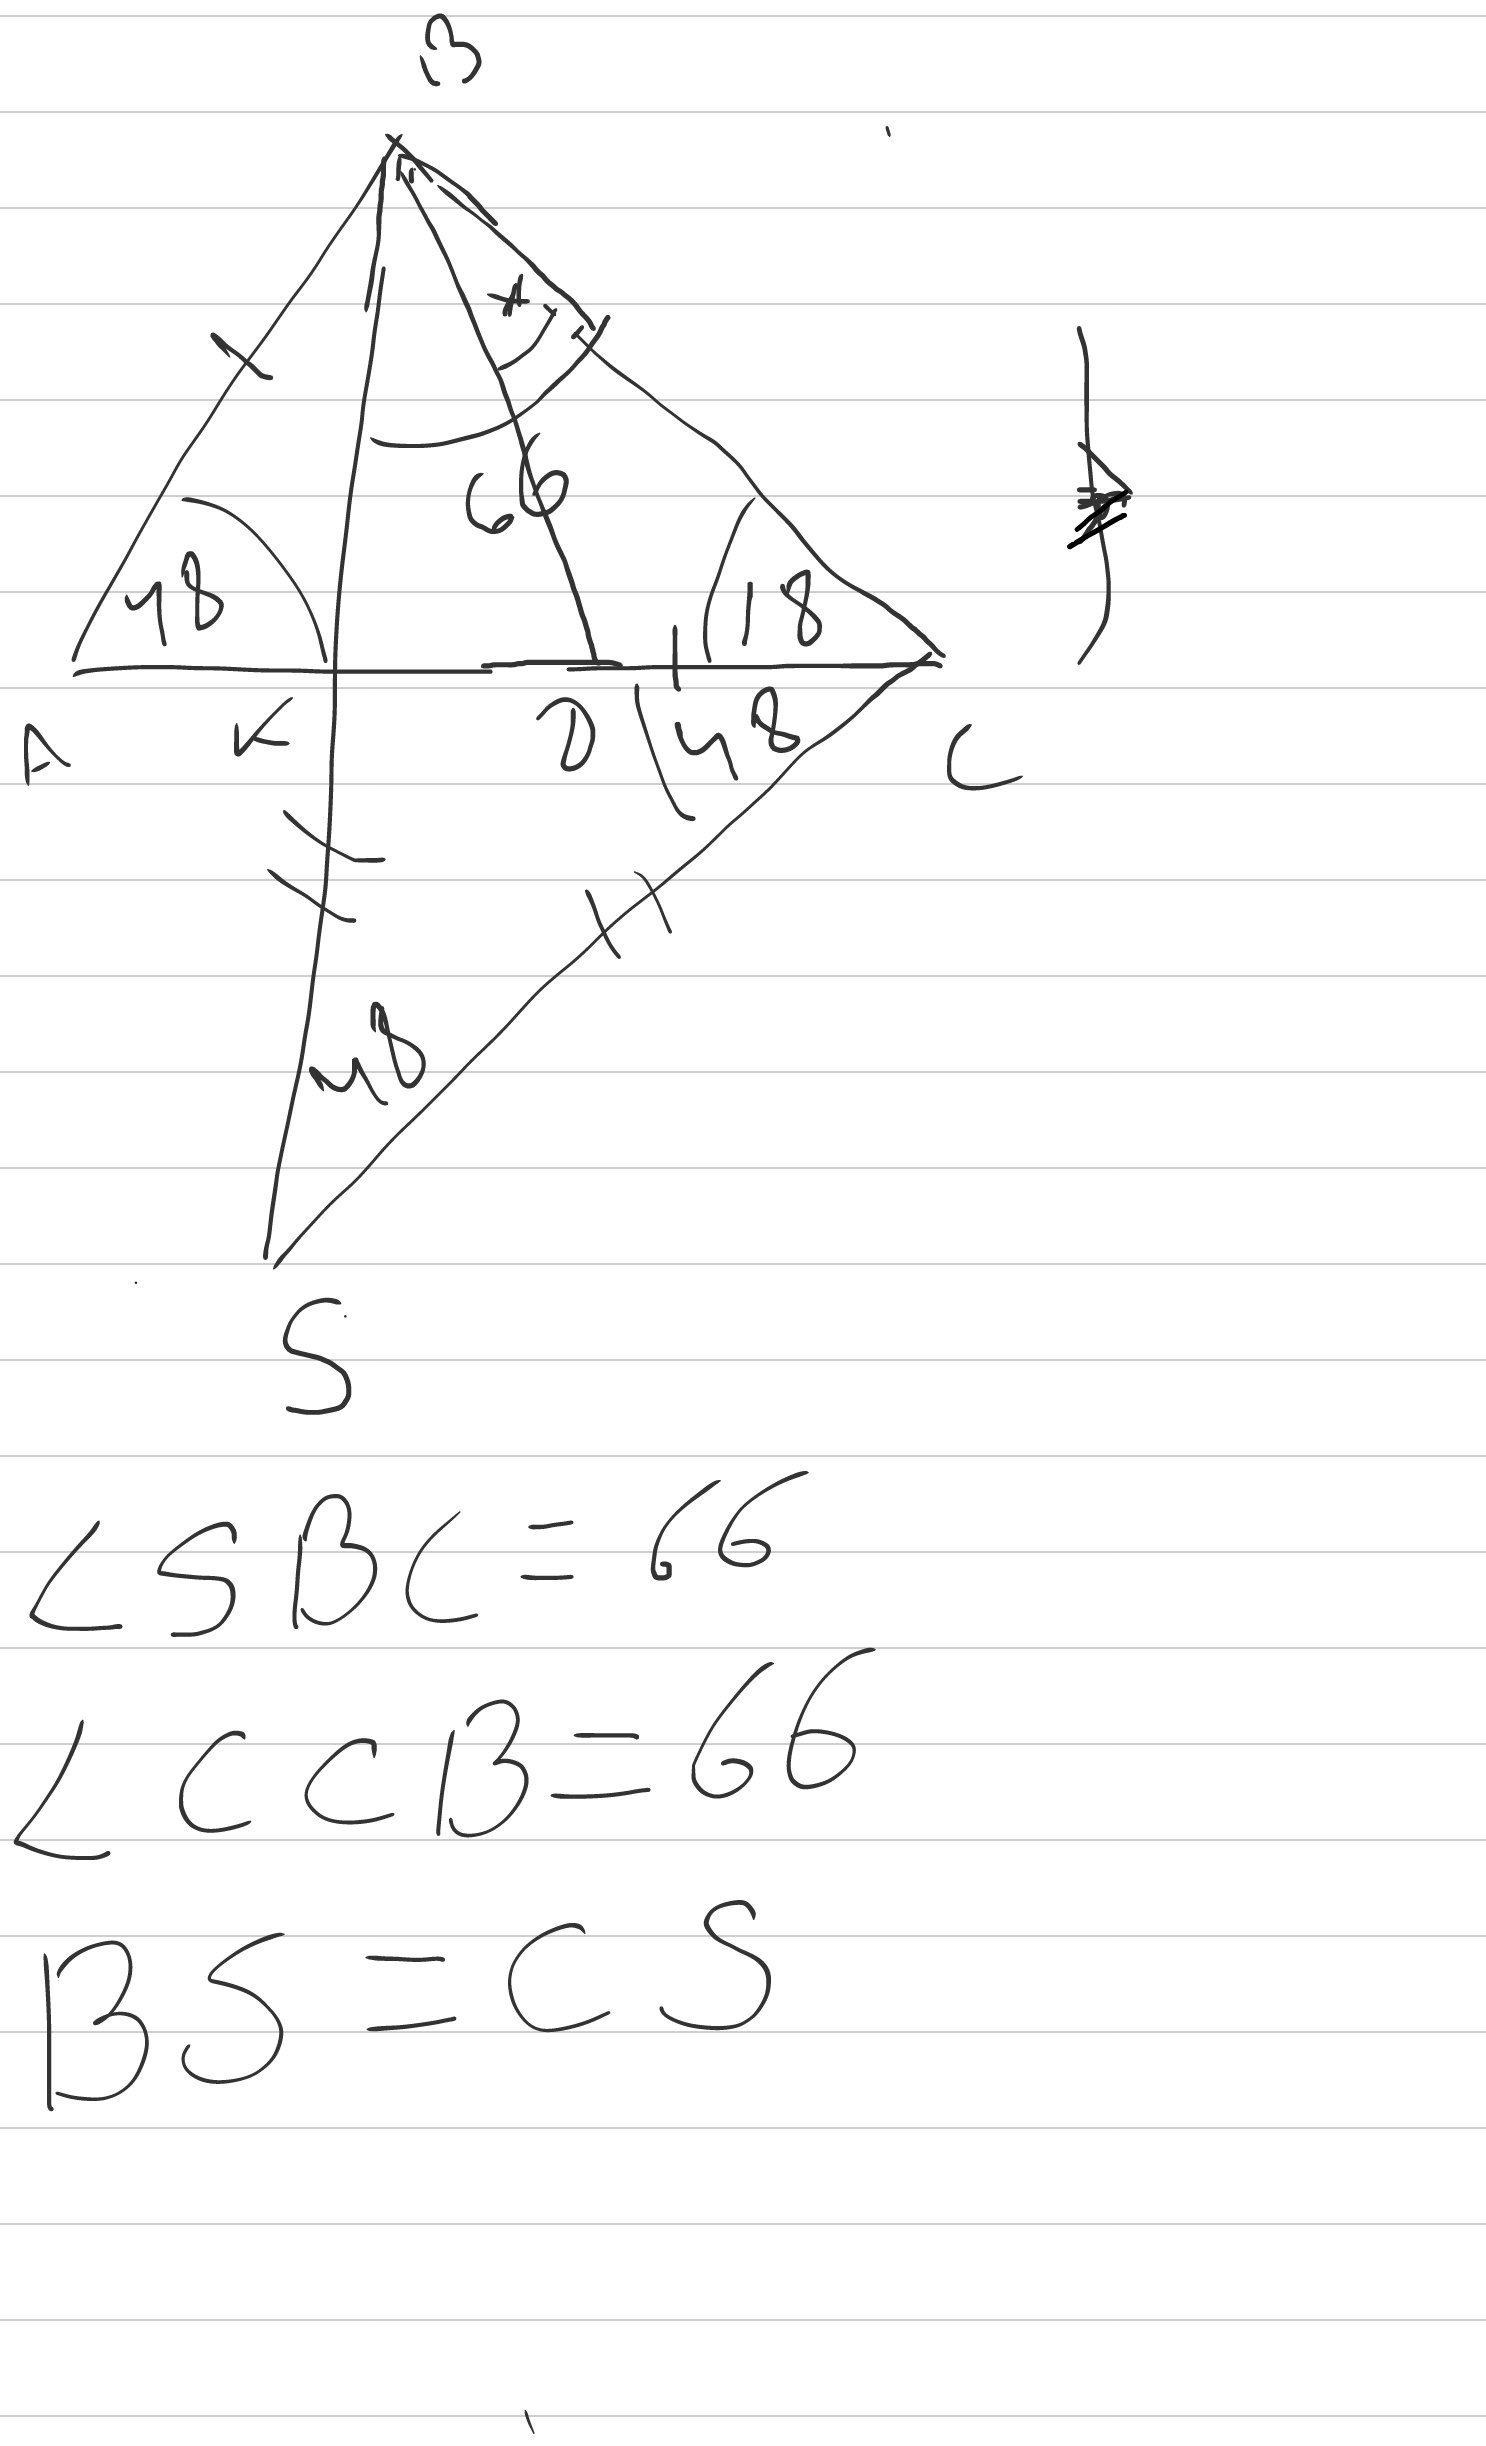 B
x
66
48
18
A
K
D
48
C
48
S
∠SBC=66
∠CCB=66
BS=CS